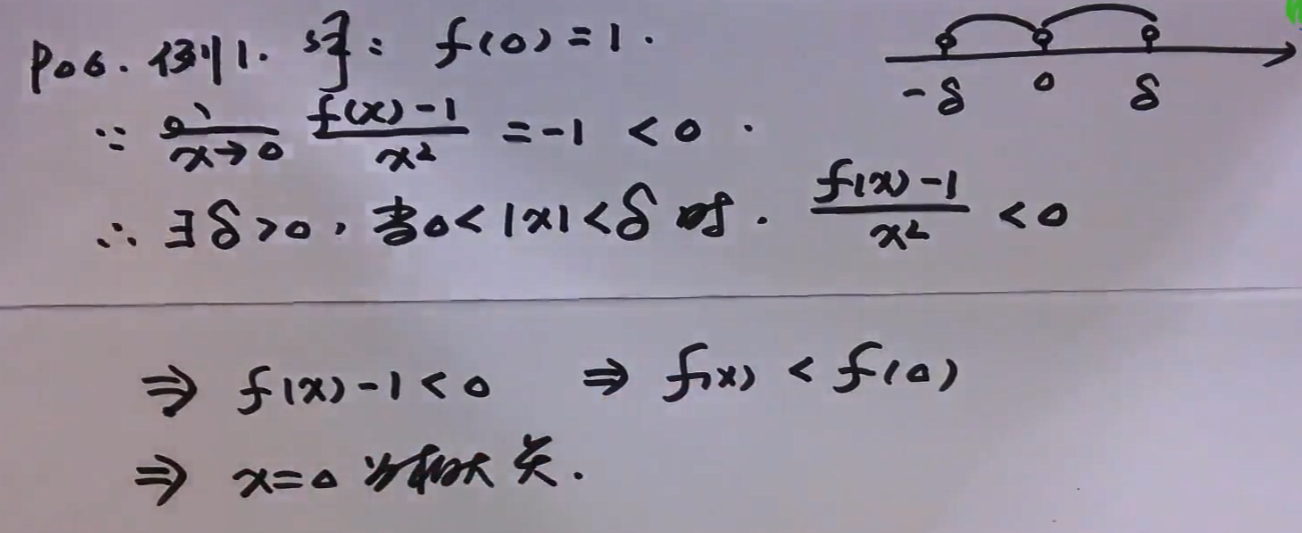 P06. 例1. 解: f(0)=1.
-δ 0 δ
∵ lim x→0 (f(x)-1)/x² = -1 < 0.
∴ ∃δ>0, 当0<|x|<δ时. (f(x)-1)/x² < 0
⇒ f(x)-1<0 ⇒ f(x) < f(0)
⇒ x=0 为极大点.